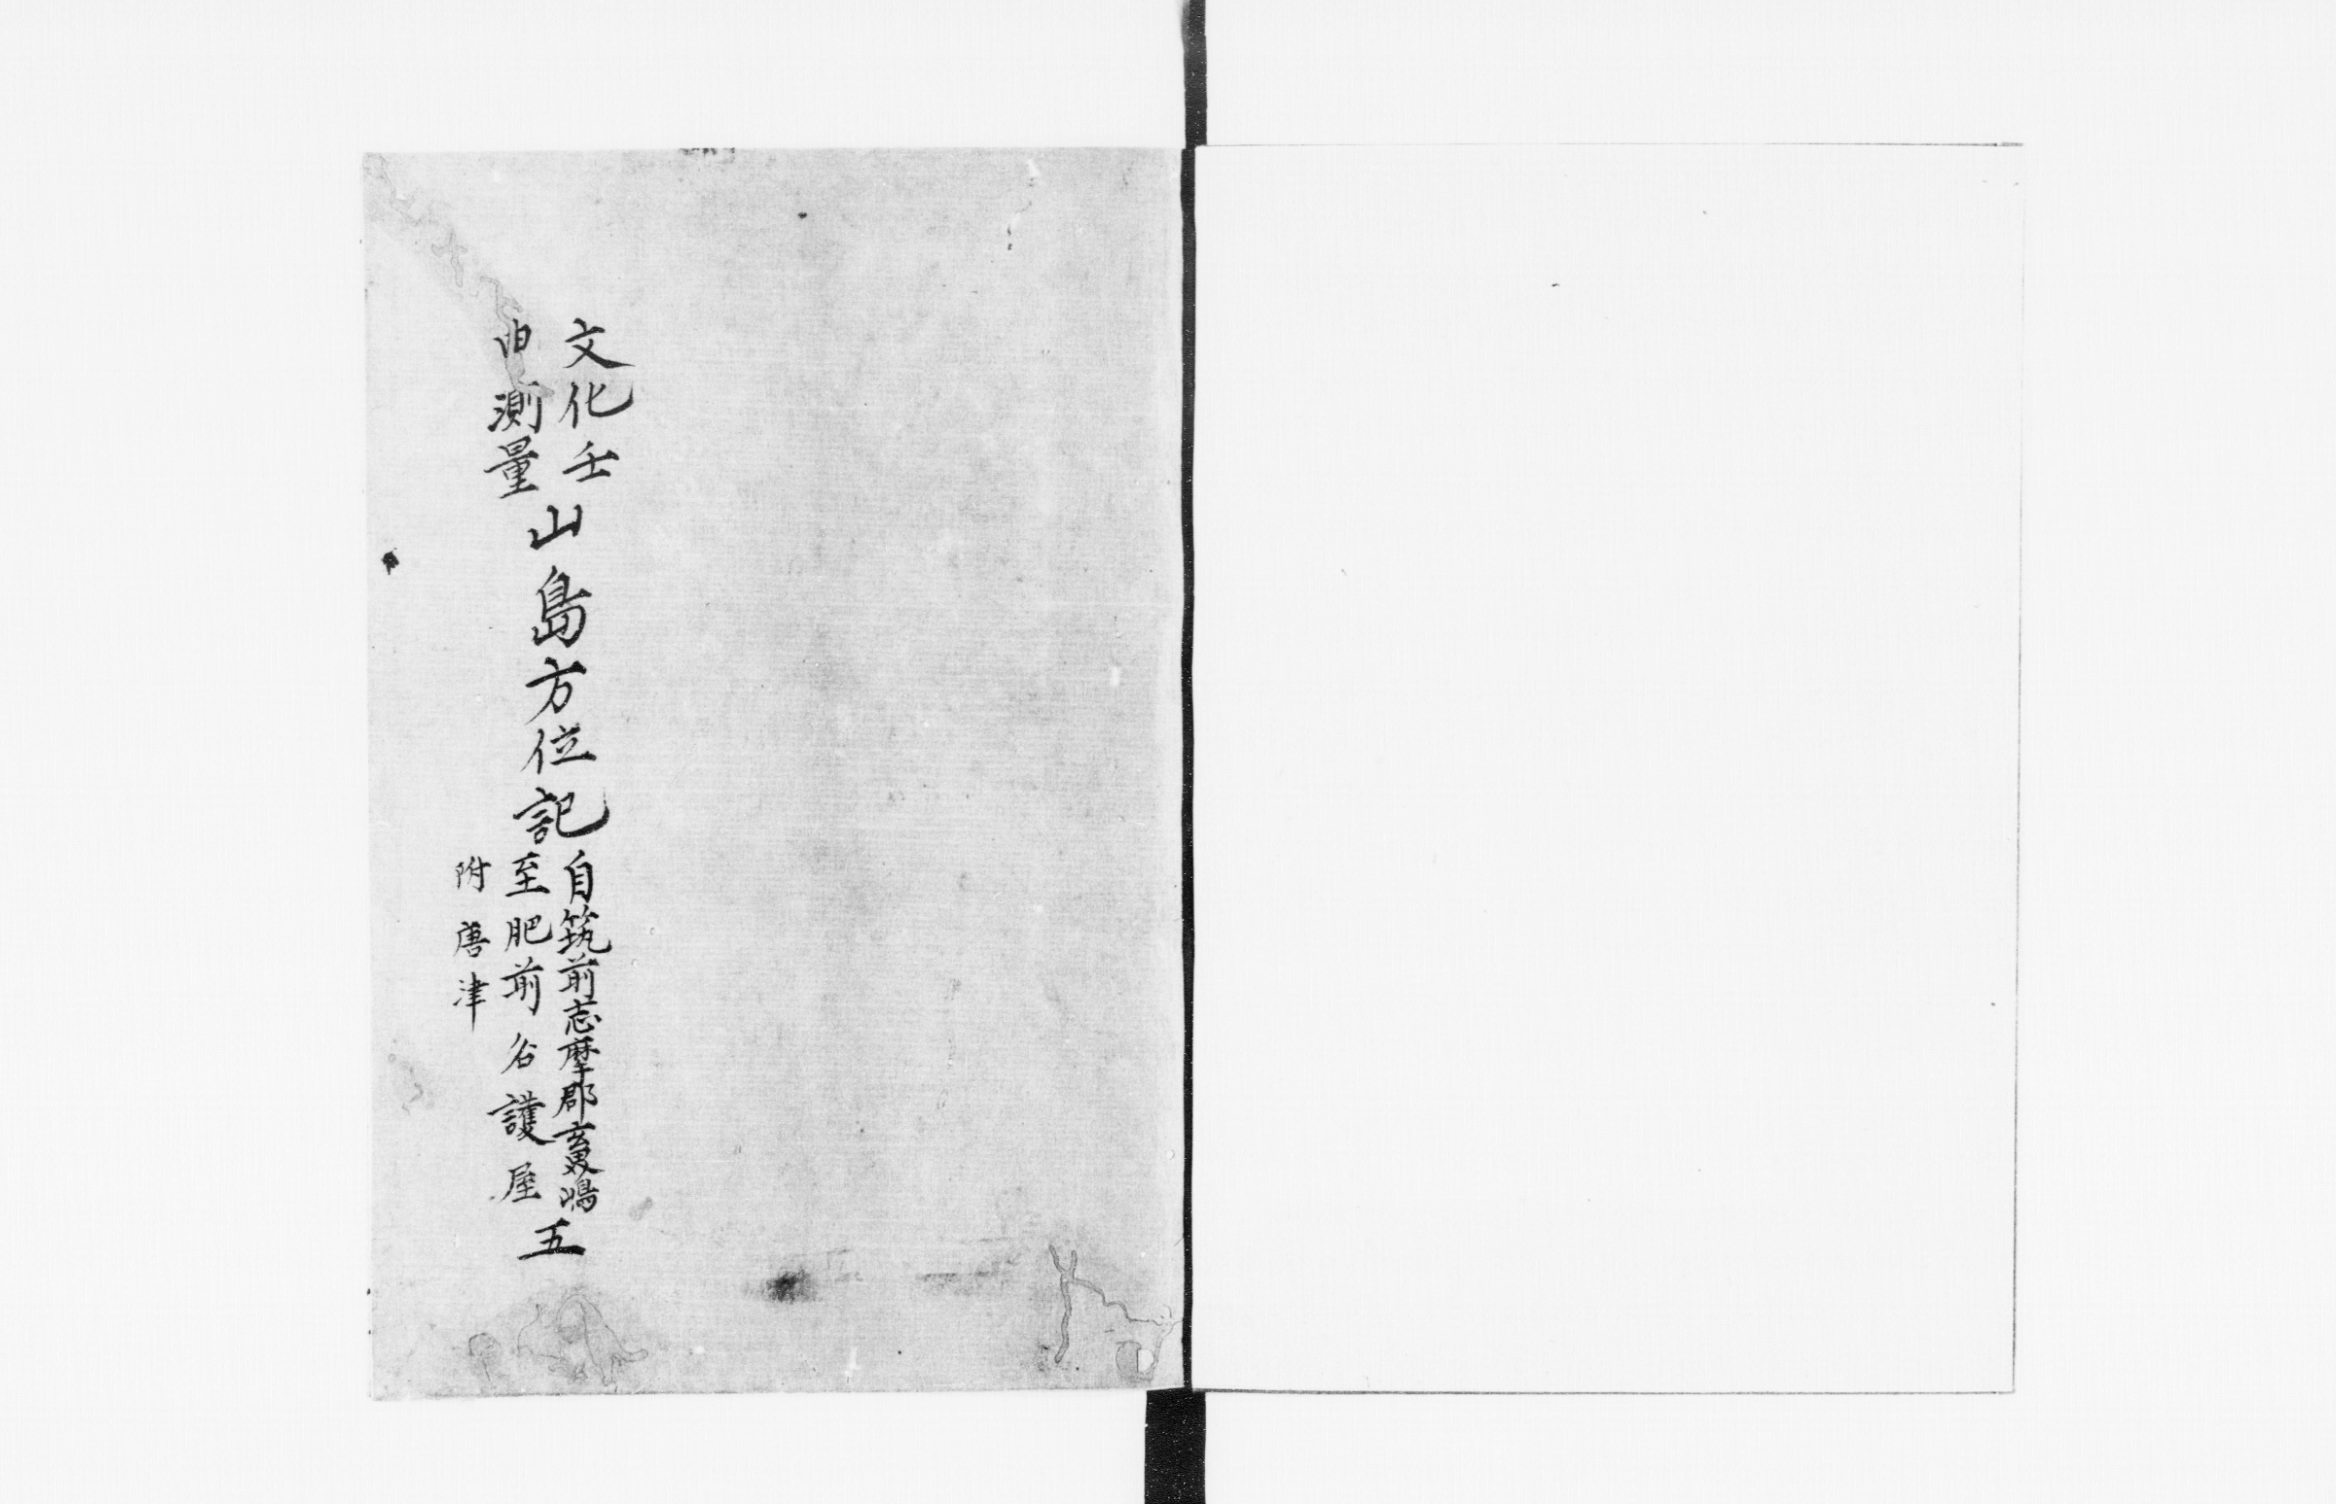 文化壬
申測量
山島方位記
自筑前志摩郡玄界嶋
至肥前名護屋
附唐津
五